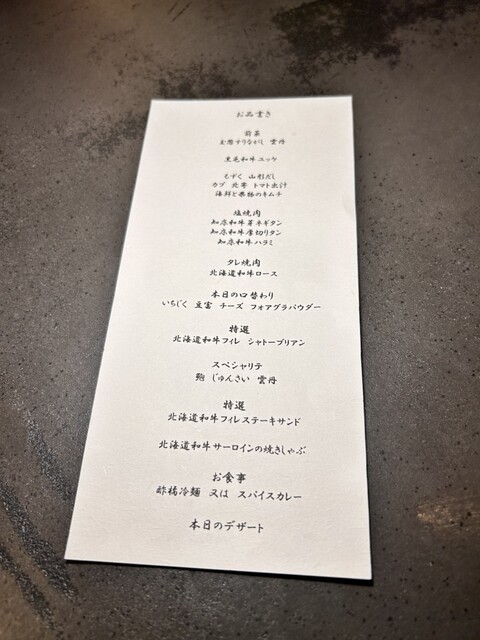 お品書き
前菜
玉蜀すりながし 雲丹
黒毛和牛ユッケ
もずく 山形だし
カブ 北寄 トマト出汁
海鮮と果物のキムチ
塩焼肉
知床和牛芽ネギタン
知床和牛厚切りタン
知床和牛ハラミ
タレ焼肉
北海道和牛ロース
本日の口替わり
いちじく 豆富 チーズ フォアグラパウダー
特選
北海道和牛フィレ シャトーブリアン
スペシャリテ
鮑 じゅんさい 雲丹
特選
北海道和牛フィレステーキサンド
北海道和牛サーロインの焼きしゃぶ
お食事
酢橘冷麺 又は スパイスカレー
本日のデザート